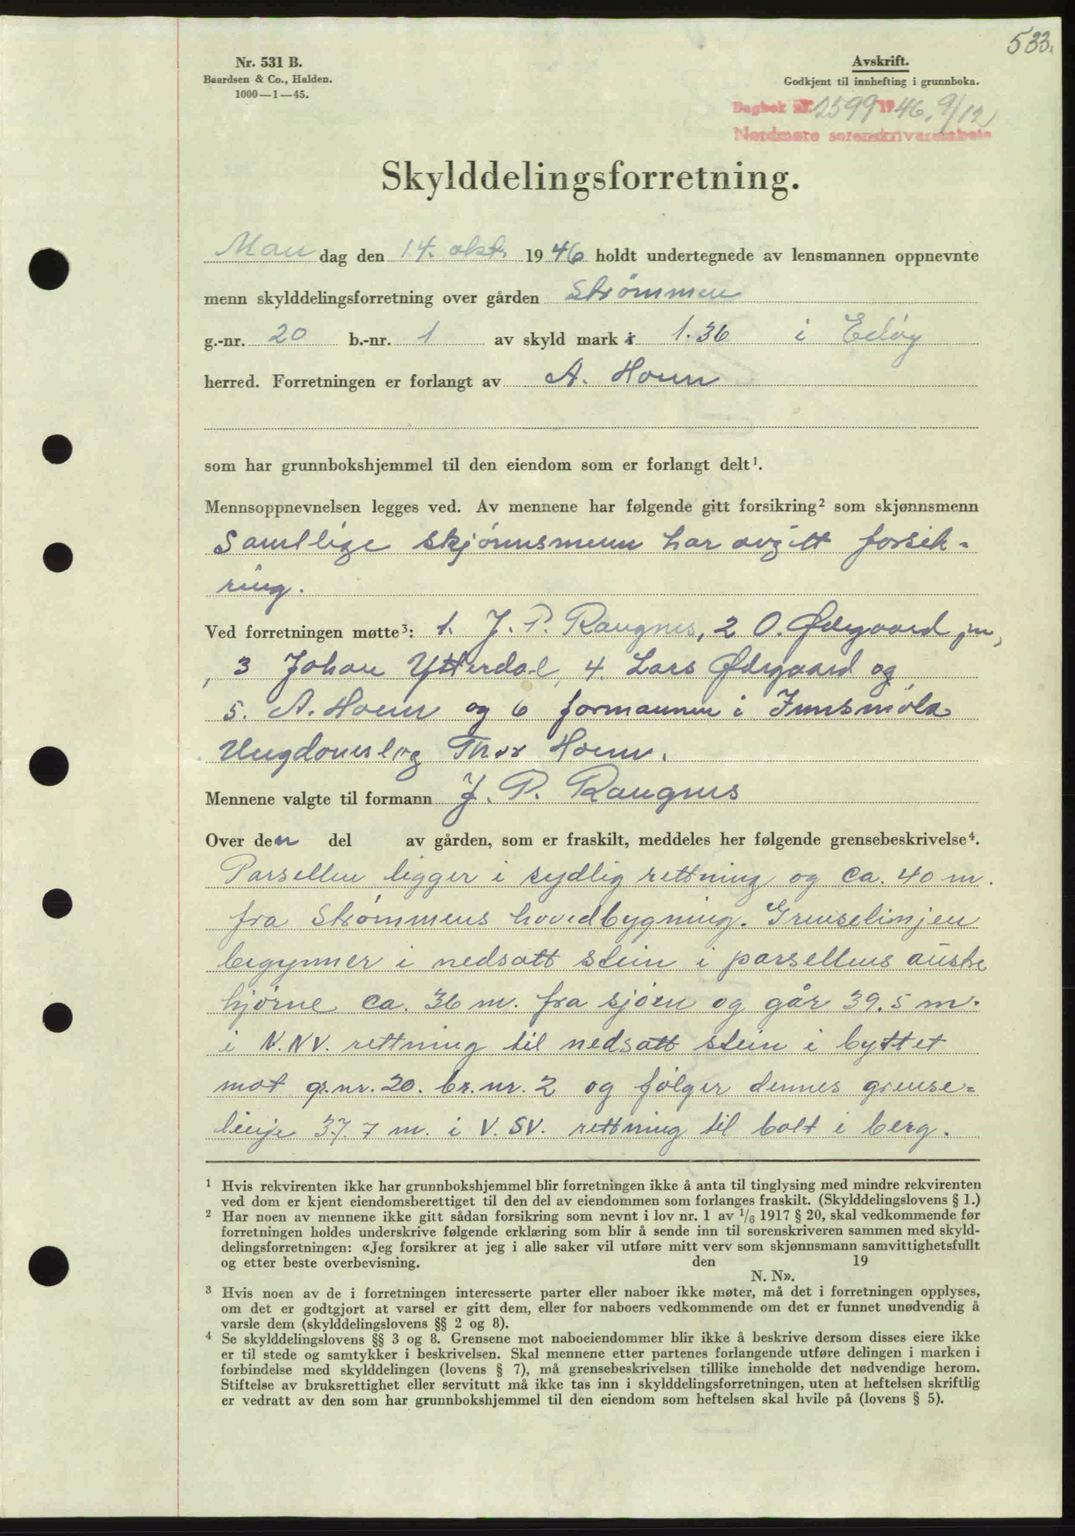 533.
Nr. 531 B.
Baardsen & Co., Halden.
1000—1—45.
Avskrift.
Godkjent til innhefting i grunnboka.
Dagbok nr. 2599 1946, 9/12
Nordmøre sorenskriverembete
Skylddelingsforretning.
Man dag den 14. okt. 1946 holdt undertegnede av lensmannen oppnevnte
menn skylddelingsforretning over gården Strømmen
g.-nr. 20 b.-nr. 1 av skyld mark 1.36 i Edøy
herred. Forretningen er forlangt av A. Hoem
som har grunnbokshjemmel til den eiendom som er forlangt delt¹.
Mennsoppnevnelsen legges ved. Av mennene har følgende gitt forsikring² som skjønnsmenn
Samtlige skjønnsmenn har avgitt forsik-
ring.
Ved forretningen møtte³: 1. J. P. Raugnes, 2 O. Ødegaard jun,
, 3 Johan Ytterdal, 4. Lars Ødegaard og
5. A. Hoem og 6 formannen i Innsmøla
Ungdomslag Thor Hoem.
Mennene valgte til formann J. P. Raugnes
Over den del av gården, som er fraskilt, meddeles her følgende grensebeskrivelse⁴.
Parsellen ligger i sydlig rettning og ca. 40 m.
fra Strømmens hovedbygning. Grenselinjen
begynner i nedsatt stein i parsellens austre
hjørne ca. 36 m. fra sjøen og går 39.5 m.
i N.NV. rettning til nedsatt stein i byttet
mot gr.nr. 20. br.nr. 2 og følger dennes grense-
linje 37.7 m. i V.SV. rettning til bolt i berg.
¹ Hvis rekvirenten ikke har grunnbokshjemmel blir forretningen ikke å anta til tinglysing med mindre rekvirenten
ved dom er kjent eiendomsberettiget til den del av eiendommen som forlanges fraskilt. (Skylddelingslovens § 1.)
² Har noen av mennene ikke gitt sådan forsikring som nevnt i lov nr. 1 av 1/6 1917 § 20, skal vedkommende før
forretningen holdes underskrive følgende erklæring som blir å sende inn til sorenskriveren sammen med skyld-
delingsforretningen: «Jeg forsikrer at jeg i alle saker vil utføre mitt verv som skjønnsmann samvittighetsfullt
og etter beste overbevisning. den 19
N. N».
³ Hvis noen av de i forretningen interesserte parter eller naboer ikke møter, må det i forretningen opplyses,
om det er godtgjort at varsel er gitt dem, eller for naboers vedkommende om det er funnet unødvendig å
varsle dem (skylddelingslovens §§ 2 og 8).
⁴ Se skylddelingslovens §§ 3 og 8. Grensene mot naboeiendommer blir ikke å beskrive dersom disses eiere ikke
er til stede og samtykker i beskrivelsen. Skal mennene etter partenes forlangende utføre delingen i marken i
forbindelse med skylddelingen (lovens § 7), må grensebeskrivelsen tillike inneholde det nødvendige herom.
Stiftelse av bruksrettighet eller servitutt må ikke tas inn i skylddelingsforretningen, uten at heftelsen skriftlig
er vedratt av den som har grunnbokshjemmel til den eiendom som heftelsen skal hvile på (lovens § 5).